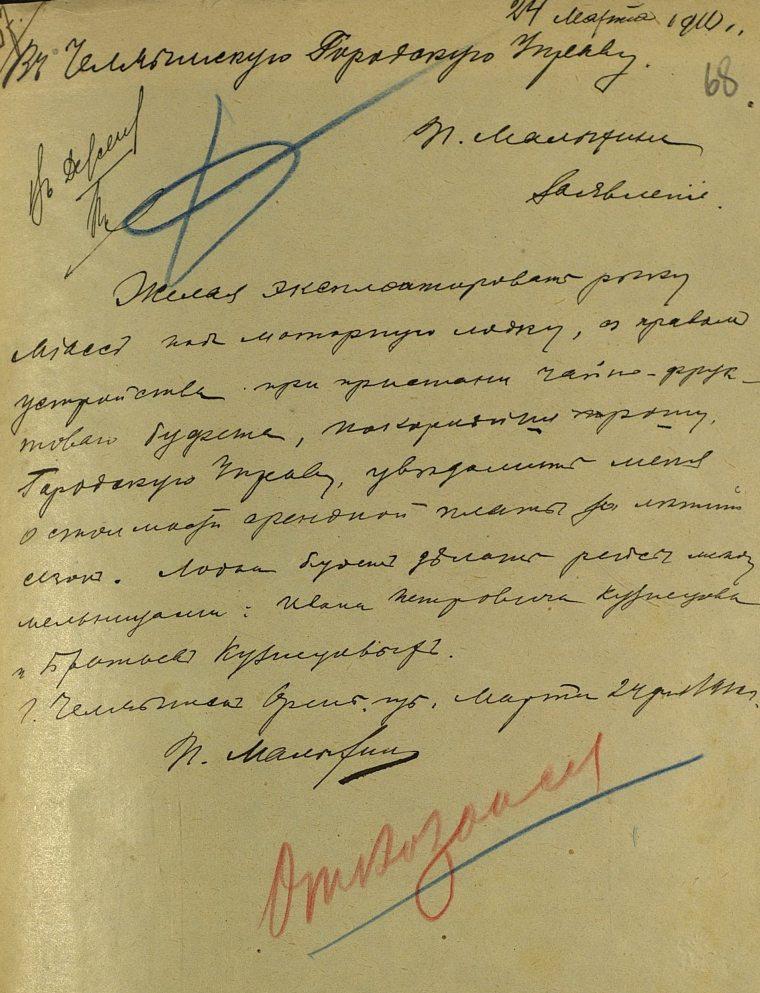 24 Марта 1910 г.
Въ Челябинскую Городскую Управу.
68
П. Малыхина
Заявленіе.
Желая эксплоатировать рѣку
Міассъ подъ моторную лодку, съ правомъ
устройства при пристани чайно-фрук-
товаго буфета, покорнѣйше прошу
Городскую Управу, увѣдомить меня
о стоимости арендной платы за лѣтній
сезонъ. Лодка будетъ дѣлать рейсъ между
мельницами: Ивана Петровича Кузнецова
и Братьевъ Кузнецовыхъ.
Г. Челябинскъ Оренб. губ. Марта 24 дня 1910 г.
П. Малыхин